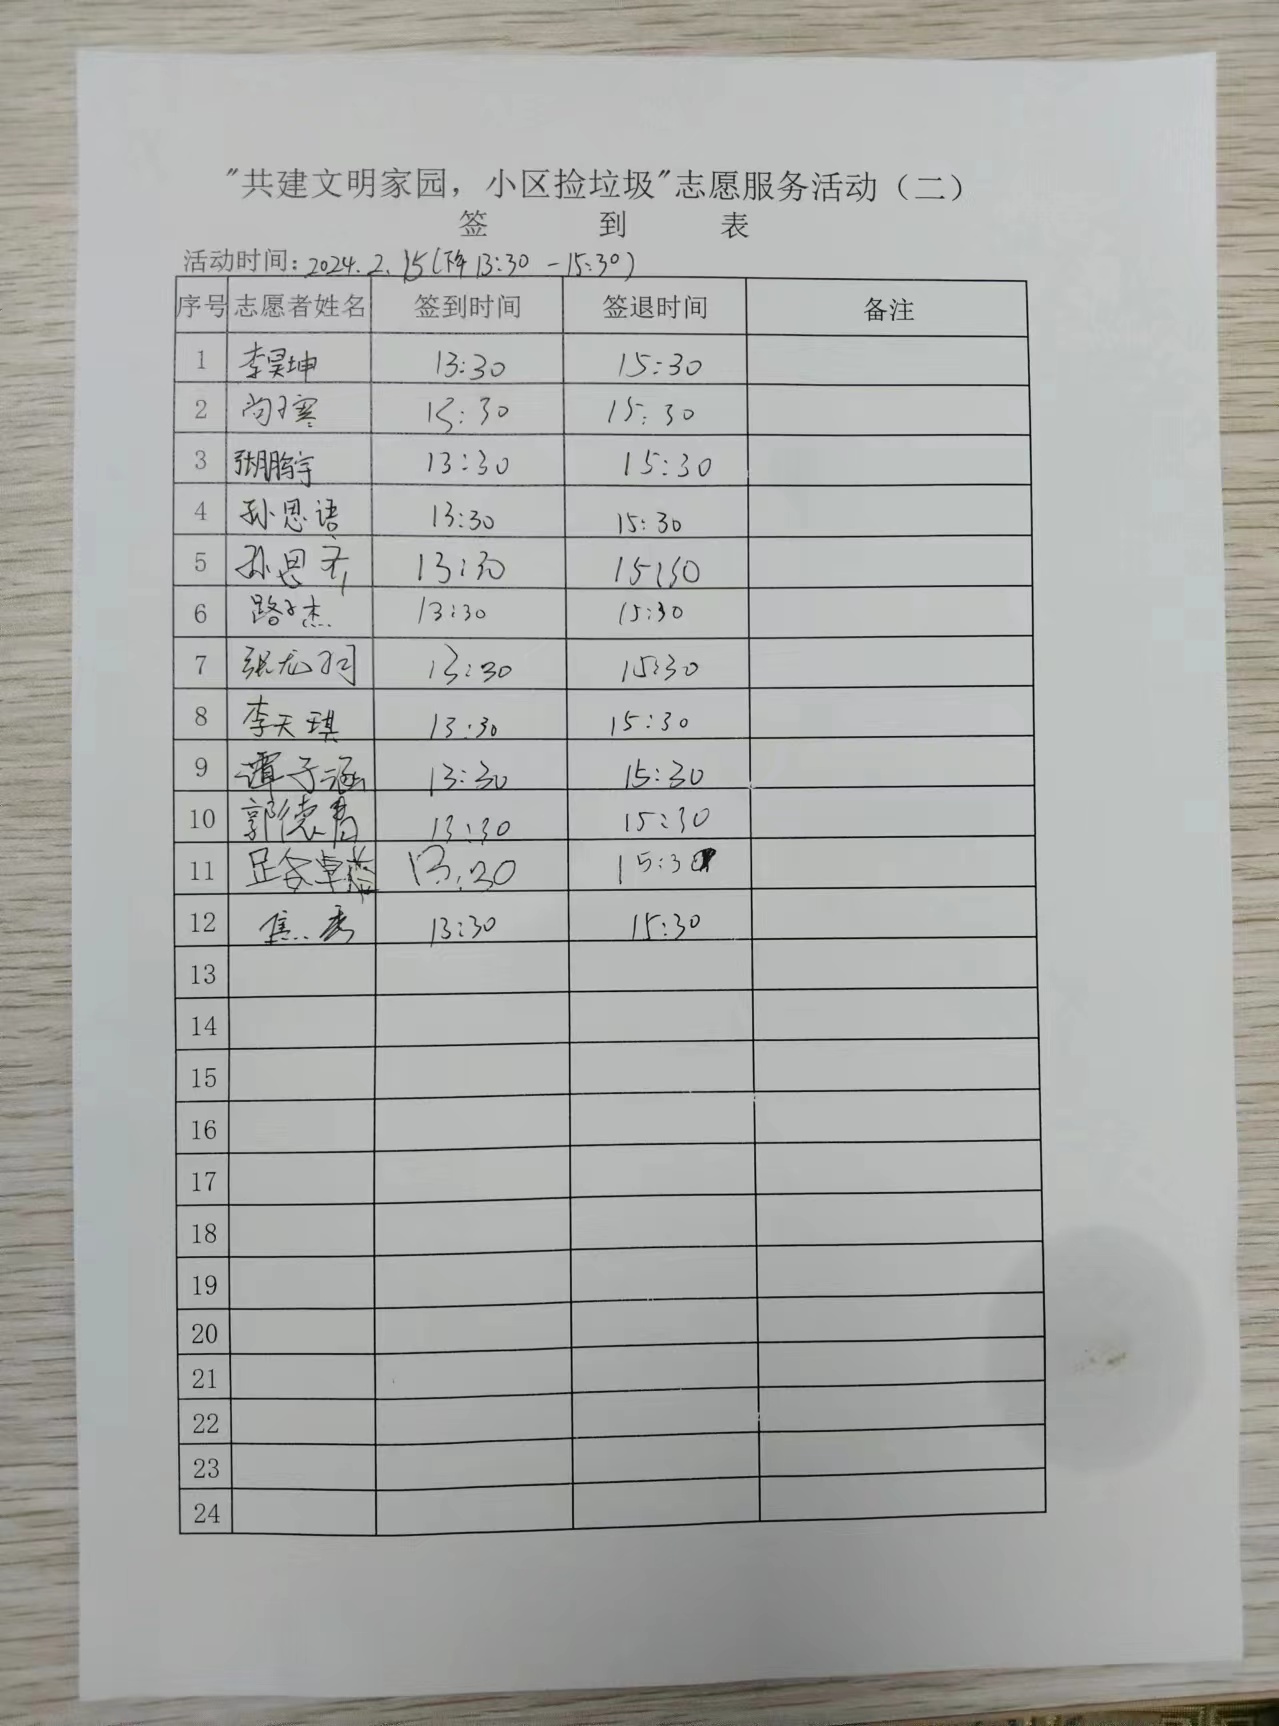 "共建文明家园，小区捡垃圾"志愿服务活动（二）
签 到 表
活动时间：2024.2.15(下午13:30-15:30)
序号 志愿者姓名 签到时间 签退时间 备注
1 李昊坤 13:30 15:30
2 尚子寒 13:30 15:30
3 张鹏宇 13:30 15:30
4 孙思语 13:30 15:30
5 孙思齐 13:30 15:30
6 路子杰 13:30 15:30
7 张龙羽 13:30 15:30
8 李天琪 13:30 15:30
9 谭子涵 13:30 15:30
10 郭德 13:30 15:30
11 13:20 15:30
12 焦秀 13:30 15:30
13
14
15
16
17
18
19
20
21
22
23
24